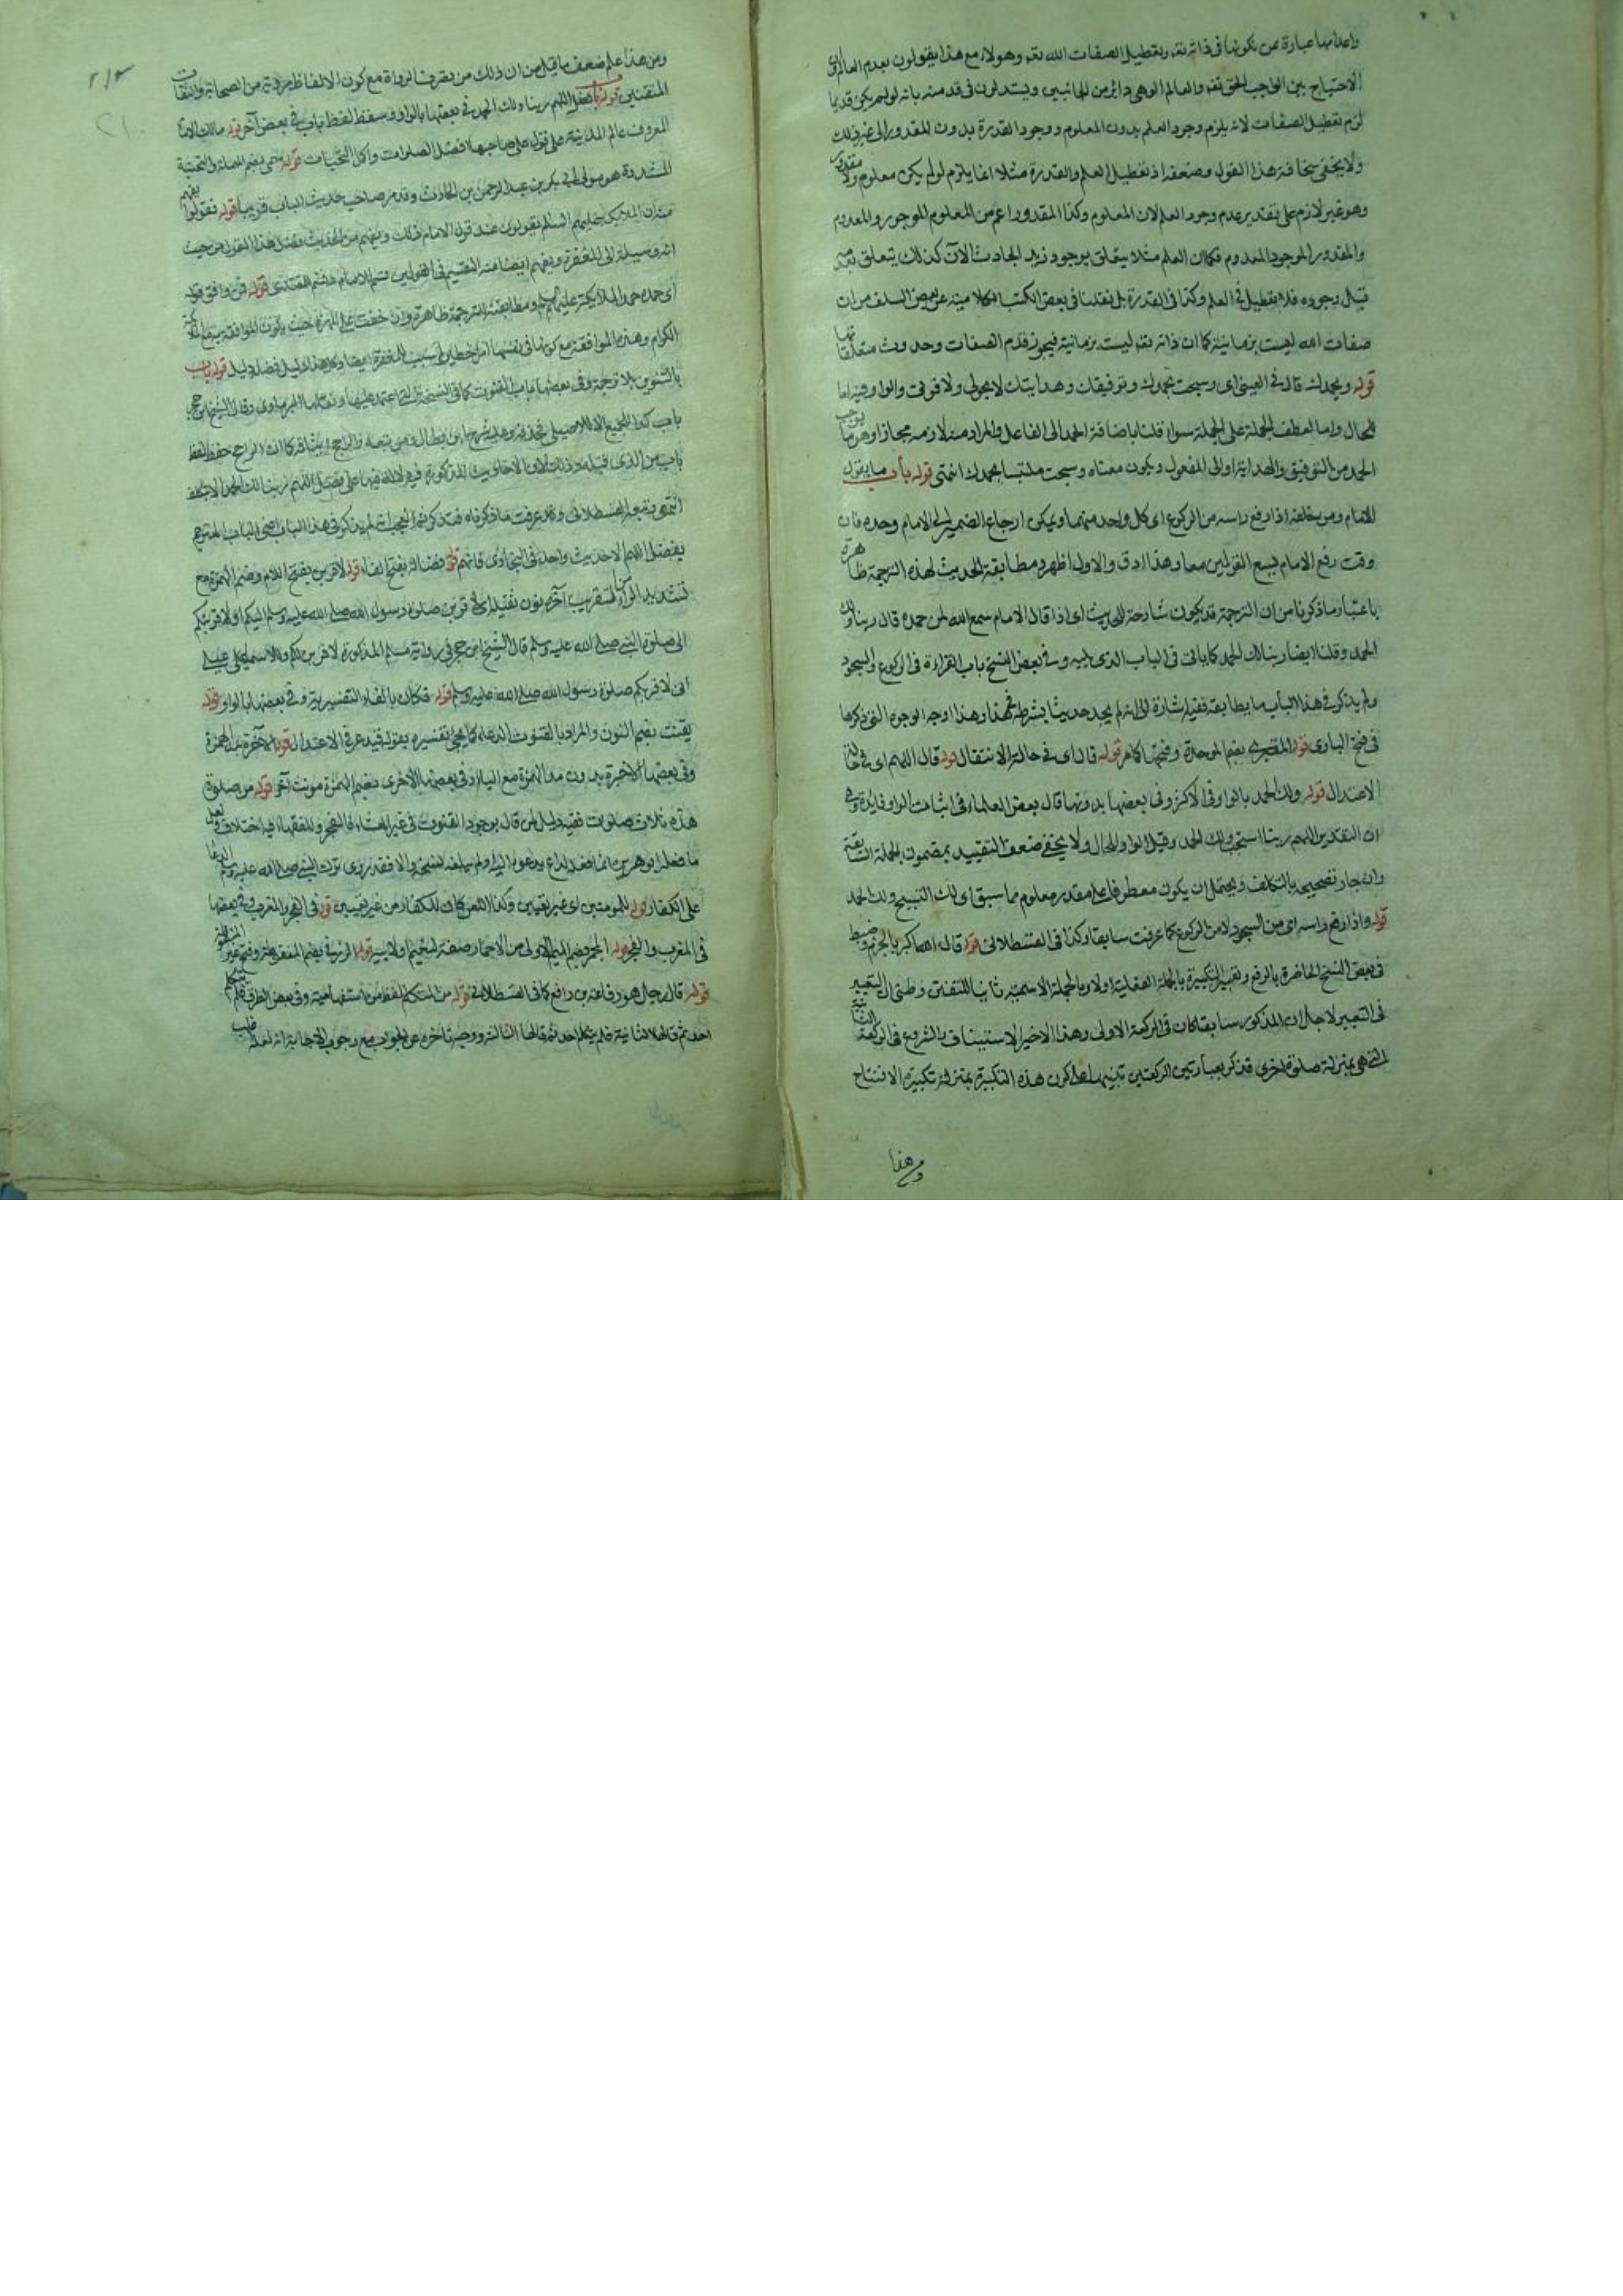 واعدامها عبارة عن كونها في ذاته تعه وتعطيل الصفات الله تعه وهولاء مع هذا يقولون بعدم العالم
الاحتياج بين الواجب الحق تعه والعالم الوهي دائر من الجانبين ويستدلون في قدمه بانه لو لم يكن قديما
لزم تعطيل الصفات لانه يلزم وجود العلم بدون المعلوم ووجود القدرة بدون المقدور الى غير ذلك
ولا يخفى سخافة هذا القول وضعفه اذ تعطيل العلم والقدرة مثلا انما يلزم لو لم يكن معلوم ولا مقدور
وهو غير لازم على تقدير عدم وجود العلم لان المعلوم وكذا المقدور اعم من المعلوم الموجود والمعدوم
والمقدور الموجود المعدوم فكما ان العلم مثلا يتعلق بوجود زيد الحادث الآن كذلك يتعلق بعدمه
قبل وجوده فلا تعطيل في العلم وكذا في القدرة بل نقلنا في بعض الكتب الكلامية عن بعض السلف من ان
صفات الله ليست بزمانية كما ان ذاته تعه ليست بزمانية فيجوز قدم الصفات وحدوث متعلقاتها
قوله وبحمدك قال في العيني اى وسبحت بحمدك وتوفيقك وهدايتك لا بحولي ولا قوتي والواو فيه اما
للحال واما لعطف الجملة على الجملة سواء قلنا باضافة الحمد الى الفاعل والمراد منه لازمه مجازا وهو ما يوجب
الحمد من التوفيق والهداية او الى المفعول ويكون معناه وسبحت ملتبسا بحمدك انتهى قوله باب ما يقول
الامام ومن خلفه اذا رفع راسه من الركوع اى كل واحد منهما ويمكن ارجاع الضمير الى الامام وحده فان
وقت رفع الامام يسع القولين معا وهذا ادق والاول اظهر ومطابقة الحديث لهذه الترجمة ظاهرة
باعتبار ما ذكرنا من ان الترجمة قد يكون شارحة للحديث اى اذا قال الامام سمع الله لمن حمده قال ربنا ولك
الحمد وقلنا ايضا ربنا لك الحمد كما ياتي في الباب الذي يليه وفي بعض النسخ باب القراءة في الركوع والسجود
ولم يذكر في هذا الباب ما يطابقه ففيه اشارة الى انه لم يجد حديثا بشرطه فهذا وهذا اوجه الوجوه التي ذكرها
في فتح الباري قوله المقبري بضم الموحدة وفتحها كما مر قوله قال اى في حالة الانتقال قوله قال اللهم اى في حالة
الاعتدال قوله ولك الحمد بالواو في الاكثر وفي بعضها بدونها قال بعض العلماء في اثبات الواو فايدة وهي
ان التقدير اللهم ربنا استجب ولك الحمد وقيل الواو للحال ولا يخفى ضعف التقييد بمضمون الجملة السابقة
وان جاز تصحيحه بالتكلف ويحتمل ان يكون معطوفا على مقدر معلوم مما سبق اى لك التسبيح ولك الحمد
قوله واذا رفع راسه اى من السجود لا من الركوع كما عرفت سابقا وكذا في القسطلاني قوله قال الله اكبر بالجزم وضبط
في بعض النسخ الحاضرة بالرفع وتغيير التكبيرة بالجملة الفعلية اولا وبالجملة الاسمية ثانيا للتفنن وظني ان التغيير
في التعبير لاجل ان المذكور سابقا كان في الركعة الاولى وهذا الاخير لاستيناف والشروع في الركعة الثانية
التي هي بمنزلة صلوة اخرى فذكر بعبارتين الركعتين تنبيها على كون هذه التكبيرة بمنزلة تكبيرة الافتتاح
ومن هذا
ومن هذا علم ضعف ما قيل من ان ذلك من تصرف الرواة مع كون الالفاظ مروية من الصحابة والثقات
المتقنين قوله باب فضل اللهم ربنا ولك الحمد في بعضها بالواو وسقط لفظ باب في بعض آخر قوله مالك الامام
المعروف عالم المدينة على قول على صاحبها افضل الصلوات واكمل التحيات قوله سمي بضم المهملة والتحتية
المشددة هو مولى ابي بكر بن عبد الرحمن بن الحارث وقد مر صاحب حديث الباب قريبا قوله فقولوا يفهم
منه ان الملائكة عليهم السلام يقولون عند قول الامام ذلك ويفهم من الحديث فضل هذا القول من حيث
انه وسيلة الى المغفرة ويفهم ايضا منه التقسيم في القولين قسم للامام وقسم للمقتدي قوله من وافق قوله
اى حمده حمد الملائكة عليهم السلام ومطابقته الترجمة ظاهرة وان خفت على المهرة حيث يكون الموافقة
الكرام وهذه الموافقة مع كونها في نفسها امر خطير سبب للمغفرة ايضا وكل هذا دليل فضله قوله باب
بالتنوين بلا ترجمة وفي بعضها باب القنوت كما في النسخة التي اعتمد عليها وقال الشيخ ابن حجر
باب كذا للجميع الا للاصيلي بحذفه وعليه شرح ابن بطال ومن تبعه والراجح اثباته كما ان الراجح حذف لفظ
باب من الذي قبله وذلك لان الاحاديث المذكورة فيه لا دلالة فيها على فضل اللهم ربنا لك الحمد الا بتكلف
انتهى وتبعه القسطلاني وقد عرفت ما ذكرناه
بفضل اللهم الا حديث واحد في البخاري فافهم قوله فضالة بفتح الفاء قوله لاقربن بفتح اللام وضم الهمزة مع
تشديد الراء من التقريب آخره نون ثقيلة اى لاقربن صلوة رسول الله صلى الله عليه وسلم اليكم او لاقربنكم
الى صلوة النبي صلى الله عليه وسلم قال الشيخ ابن حجر في رواية مسلم المذكورة لاقربن لكم وللاسمعيلي
اني لاقربكم صلوة رسول الله صلى الله عليه وسلم قوله فكان بالفاء التفسيرية وفي بعضها بالواو قوله
يقنت بضم النون والمراد بالقنوت الدعاء كما يجئ تفسيره بقوله فيدعو في الاعتدال قوله الآخرة بمد الهمزة
وفي بعضها الاخيرة بدون مد الهمزة مع الياء وفي بعضها الاخرى بضم الهمزة مونث آخر قوله من صلوة
هذه ثلاث صلوات ففيه دليل لمن قال بوجود القنوت في غير العشاء فالفجر وللفقهاء فيه اختلاف ولعل
ما فعله ابو هريرة
على الكفار قوله للمومنين اى غير معينين وكذا اللعن كان للكفار من غير تعيين قوله في الفجر والمغرب وفي بعضها
في المغرب والفجر قوله المجمر بضم الميم الاولى من الاجمار صفة لنعيم ولابيه قوله الزرقي بضم المنقوطة وفتح غير المنقوطة
قوله قال رجل هو رفاعة بن رافع كما في القسطلاني قوله من المتكلم لفظ من استفهامية وفي بعض الطرق فلم يتكلم
احد ثم قالها الثانية فلم يتكلم احد ثم قالها الثالثة ووجه تاخره عن الجواب مع وجوب الاجابة انه لعله